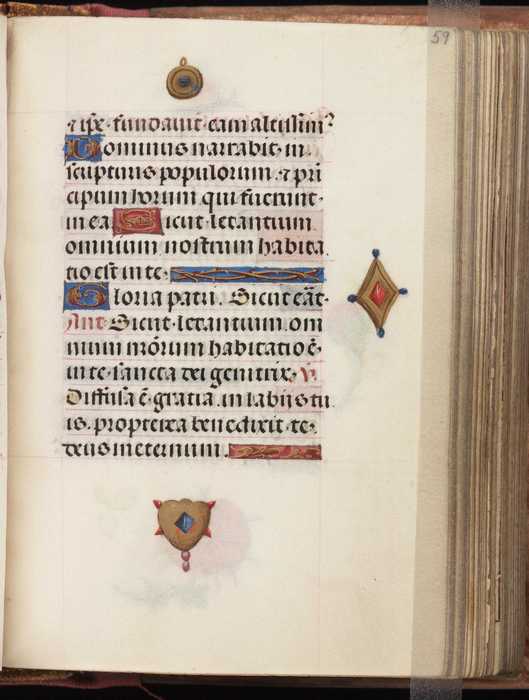 59
⁊ ip̄e · fundauit · eam altissim᷒
Dominus narrabit · in
scripturis populorum · ⁊ pri
cipum horum qui fuerunt ·
in ea · Sicut · letantium
omnium nostrum habita
tio est in te ·
Gloria patri · Sicut erāt ·
Ant · Sicut · letantium om
nium nr̄õrum habitatio ē ·
in te · sancta dei genitrix · V̄
Diffusa ē · gratia · in labijs tu
is · propterea benedixit · te ·
deus in eternum ·